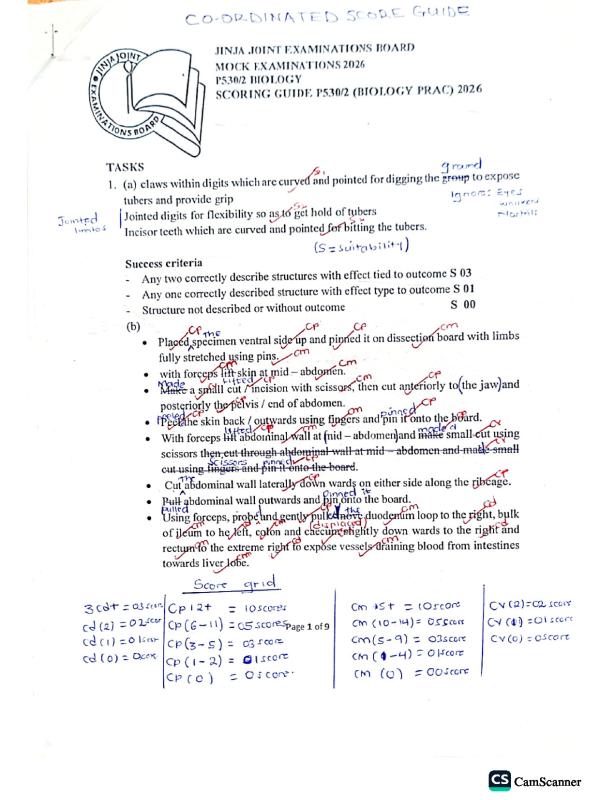 CO-ORDINATED SCORE GUIDE
JINJA JOINT EXAMINATIONS BOARD
JINJA JOINT EXAMINATIONS BOARD
MOCK EXAMINATIONS 2026
P530/2 BIOLOGY
SCORING GUIDE P530/2 (BIOLOGY PRAC) 2026
TASKS
ground
1. (a) claws within digits which are curved and pointed for digging the group to expose
tubers and provide grip
Ignore: Eyes
whiskers
Nostrils
Jointed limbs
Jointed digits for flexibility so as to get hold of tubers
Incisor teeth which are curved and pointed for bitting the tubers.
(S = suitability)
Success criteria
- Any two correctly describe structures with effect tied to outcome S 03
- Any one correctly described structure with effect type to outcome S 01
- Structure not described or without outcome S 00
(b)
• Placed the specimen ventral side up and pinned it on dissection board with limbs
fully stretched using pins.
• with forceps lift skin at mid – abdomen.
Made Lifted
• Make a small cut / incision with scissors, then cut anteriorly to (the jaw) and
posteriorly the pelvis / end of abdomen.
• Peel the skin back / outwards using fingers and pin it onto the board.
pinned
• With forceps lift abdominal wall at (mid – abdomen) and make small cut using
made a
scissors then cut through abdominal wall at mid – abdomen and make small
cut using fingers and pin it onto the board.
scissors pinned
• Cut the abdominal wall laterally down wards on either side along the ribcage.
• Pull abdominal wall outwards and pin onto the board.
pulled pinned it
• Using forceps, probe and gently pulled / move the duodenum loop to the right, bulk
(displaced)
of ileum to he left, colon and caecum slightly down wards to the right and
rectum to the extreme right to expose vessels draining blood from intestines
towards liver lobe.
Score grid
3 cd+ = 03 score
cd (2) = 02 score
cd (1) = 01 score
cd (0) = 0 score
Cp 12+ = 10 scores
Cp (6-11) = 05 scores
Cp (3-5) = 03 score
Cp (1-2) = 01 score
Cp (0) = 0 score
Page 1 of 9
cm 15+ = 10 score
cm (10-14) = 05 score
cm (5-9) = 03 score
cm (1-4) = 01 score
cm (0) = 00 score
Cv (2) = 02 score
Cv (1) = 01 score
Cv (0) = 0 score
CS CamScanner